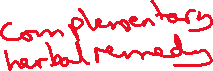 complementary
herbal remedy